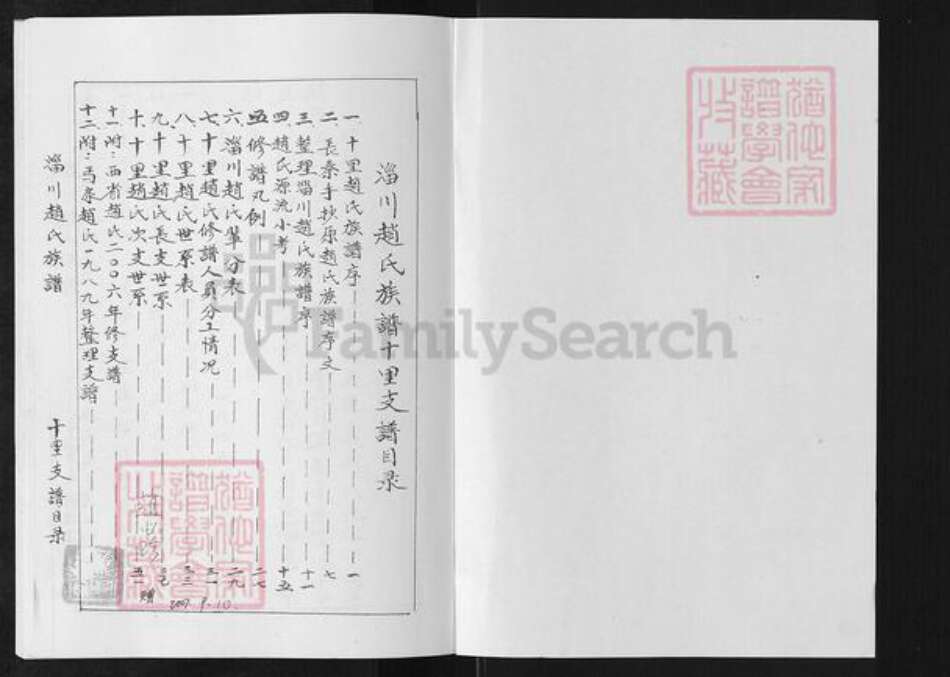 淄川趙氏族譜十里支譜目录
一 十里趙氏族譜序 一
二 長条手抄原趙氏族譜序文 七
三 整理淄川趙氏族譜序 十一
四 趙氏源流小考 十五
五 修譜凡例 二七
六 淄川趙氏輩分表 二九
七 十里趙氏修譜人員分工情况 三一
八 十里趙氏世系表 三三
九 十里趙氏長支世系
十 十里趙氏次支世系 五一
十一 附：西省趙氏二〇〇六年修支譜
十二 附：馬泉趙氏一九八九年整理支譜
淄川趙氏族譜 十里支譜目录
贈
猶他家
譜學會
收藏
猶他家
譜學會
收藏
FamilySearch